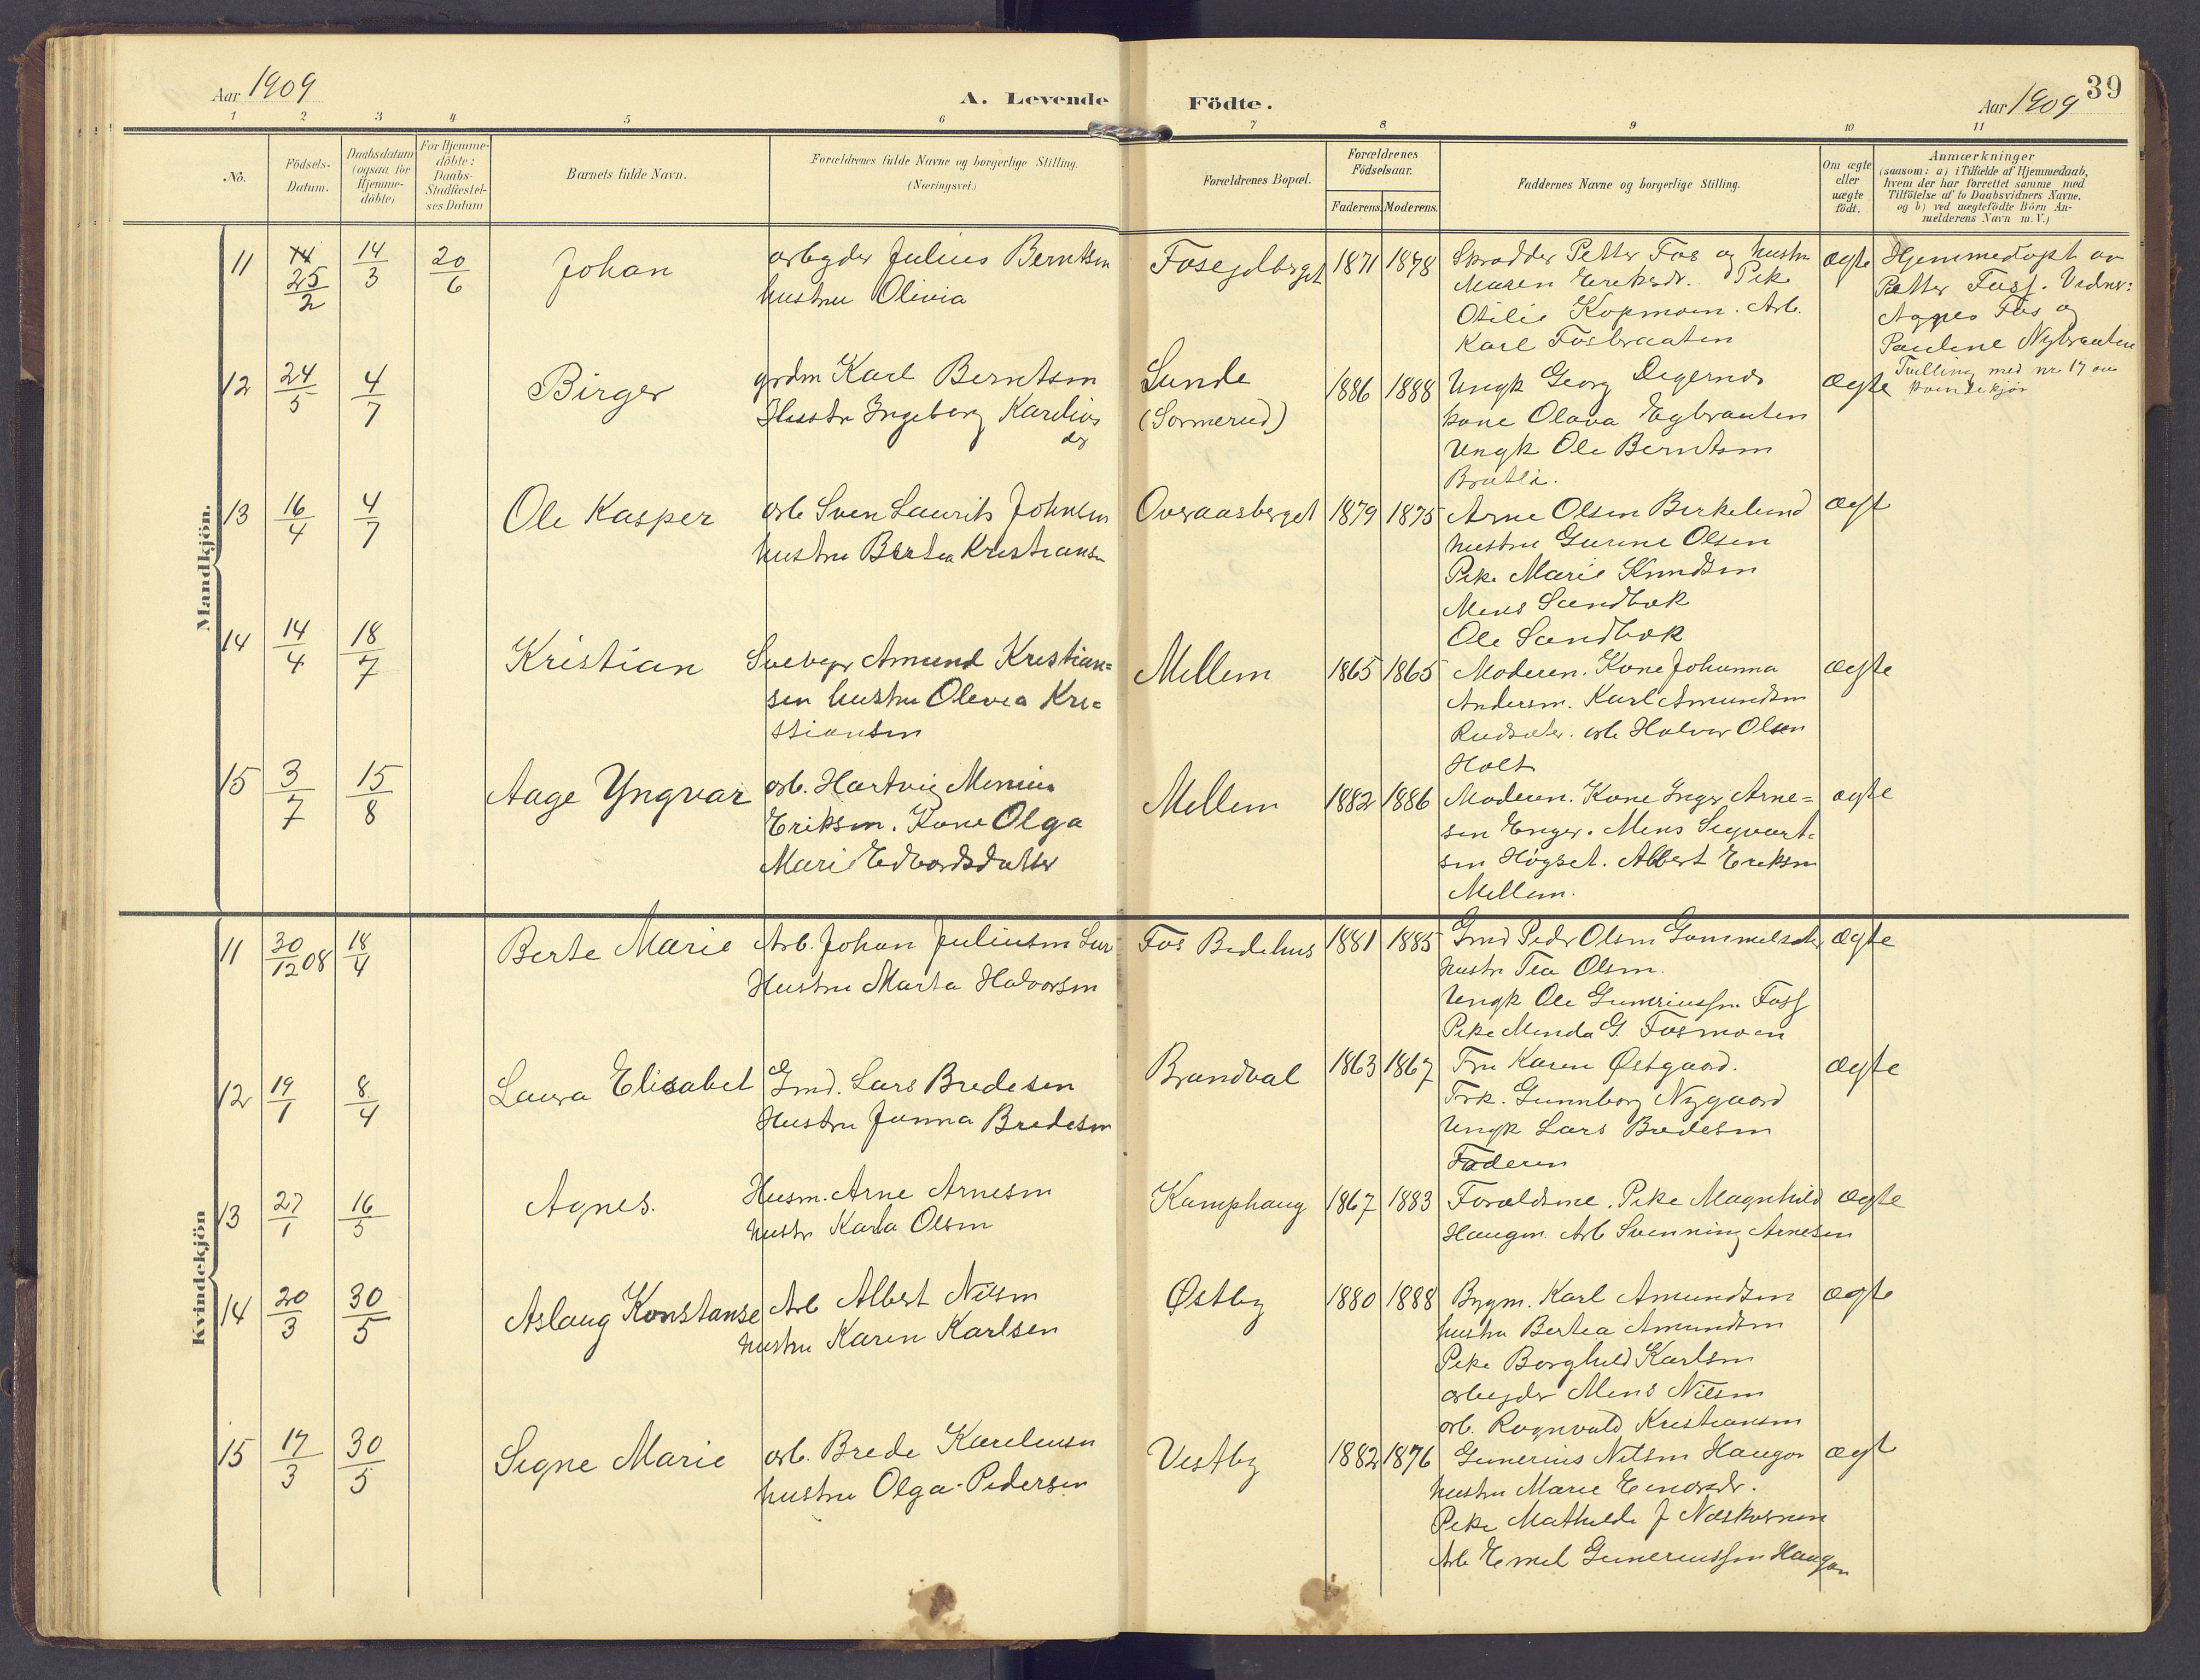 Aar 1909
A. Levende Födte.
39
Aar 1909
1 2 3 4 5 6 7 8 9 10 11
No.
Födsels-
Datum.
Daabsdatum
(ogsaa for
Hjemme-
döbte)
For Hjemme-
döbte:
Daabs-
Stadfæstel-
ses Datum
Barnets fulde Navn.
Forældrenes fulde Navne og borgerlige Stilling.
(Næringsvei.)
Forældrenes Bopæl.
Forældrenes
Födselsaar.
Faderens. Moderens.
Faddernes Navne og borgerlige Stilling.
Om ægte
eller
uægte
födt.
Anmærkninger
(saasom: a) i Tilfælde af Hjemmedaab,
hvem der har forrettet samme med
Tilföielse af to Daabsvidners Navne.
og b) ved uægtefödte Börn An-
melderens Navn m. V.)
Mandkjön.
11 25/2 14/3 20/6 Johan
arbeyder Julius Berntsen
hustru Olivia
1871 1878
Skrædder Petter Fos og hustru
Maren Eriksdr. Pike
Otilie Kopmoen. Arb.
Karl Fosbraaten
ægte
Hjemmedøpt av
Petter Foss. Vidner:
Agnes Fos og
Pauline Nybraaten
12 24/5 4/7 Birger
grdm Karl Berntsen
Hustr Ingeborg Karelius
dr
Lunde
(Sormerud)
1886 1888
Ungk Georg Degernes
kone Olava Egbraaten
Ungk Ole Berntsen
Bratli.
ægte
Tvilling med nr 17 av
kvindekjøn
13 16/4 4/7 Ole Kasper
arb Sven Laurits Johnsen
hustru Bertea Kristians
Overaasberget
1879 1875
Arne Olsen Birkelund
hustru Gurine Olsen
Pike Marie Knudsen
Mens Sandbæk
Ole Sandbæk
ægt
14 14/4 18/7 Kristian
Amund Kristian=
sen hustru Olevea Kri=
stiansen
Mellem
1865 1865
Moderen. Kone Johanna
Andersen. Karl Amundsen
Rudsæter. arb Halvor Olsen
Holt
ægte
15 3/7 15/8 Aage Yngvar
arb. Hartvig Menius
Eriksen. Kone Olga
Mari Edvardsdatter
Mellem
1882 1886
Moderen. Kone Inger Arne=
sen Enger. Mens Sigvart=
sen Høgset. Albert Eriksen
Mellem.
ægte
Kvindekjön
11 30/12 08 18/4 Berte Marie
Arb. Johan Juliusen
Hustru Marta Halvorsen
Fos Bedehus
1881 1885
Grmd Peder Olsen Gammelsæter
hustr Tea Olsen.
Ungk Ole Guneriussen Foss
Pike Menda G. Fosmoen
ægte
12 19/1 8/4 Laura Elisabet
Grmd. Lars Bredesen
Hustru Janna Bredesen
Brandval
1863 1867
Fru Karen Østgaard.
Frk. Gunnborg Nygaard
Ungk Lars Bredesen
Faderen
ægte
13 27/1 16/5 Agnes.
Husm. Arne Arnesen
hustr Karla Olsen
Kamphaug
1867 1883
Forældrene. Pike Magnhild
Haugen. Arb Svenning Arnesen
ægte
14 20/3 30/5 Aslaug Konstanse
Arb Albert Nilsen
hustru Karen Karlsen
Østby
1880 1888
Bygm. Karl Amundsen
hustru Bertea Amundsen
Pike Borghild Karlsen
arbeyder Mens Nilsen
arb. Ragnvald Kristiansen
ægte
15 17/3 30/5 Signe Marie
arb. Brede Kareliusen
hustru Olga Pedersen
Vestby
1882 1876
Gunerius Nilsen Haugen
hustru Marie
Pike Mathilde J Næskvernen
Arb Emil Gunerius­sen Haugen
ægt